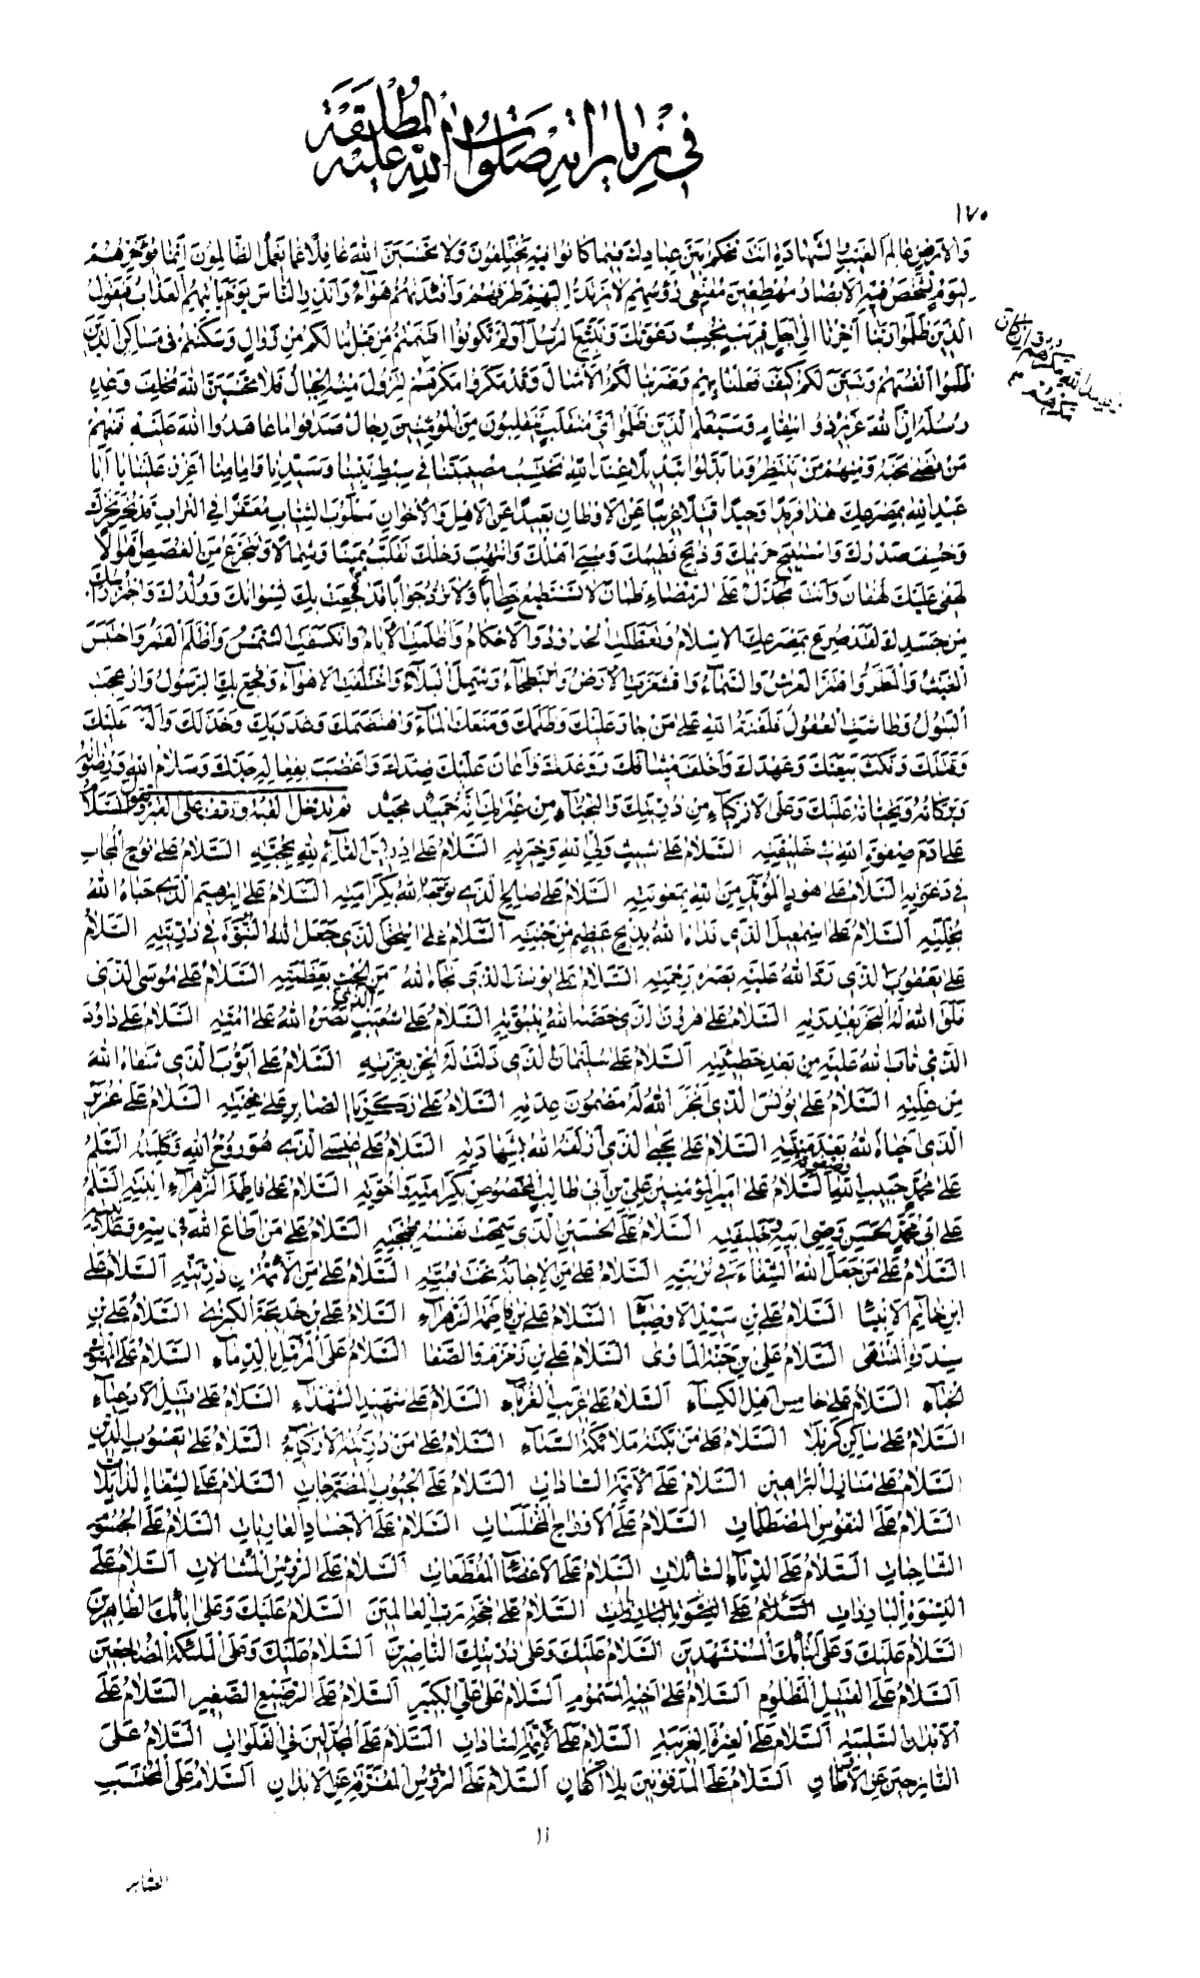 في زياراته صلوات الله عليه المطلقة
١٧٠
وَالْاَرْضِ عَالِمَ الْغَيْبِ وَالشَّهَادَةِ اَنْتَ تَحْكُمُ بَيْنَ عِبَادِكَ فِيمَا كَانُوا فِيهِ يَخْتَلِفُونَ وَلَا تَحْسَبَنَّ اللهَ غَافِلًا عَمَّا يَعْمَلُ الظَّالِمُونَ اِنَّمَا يُؤَخِّرُهُمْ
لِيَوْمٍ تَشْخَصُ فِيهِ الْاَبْصَارُ مُهْطِعِينَ مُقْنِعِي رُؤُسِهِمْ لَا يَرْتَدُّ اِلَيْهِمْ طَرْفُهُمْ وَاَفْئِدَتُهُمْ هَوَآءٌ وَاَنْذِرِ النَّاسَ يَوْمَ يَاْتِيهِمُ الْعَذَابُ فَيَقُولُ
الَّذِينَ ظَلَمُوا رَبَّنَا اَخِّرْنَا اِلَى اَجَلٍ قَرِيبٍ نُجِبْ دَعْوَتَكَ وَنَتَّبِعِ الرُّسُلَ اَوَلَمْ تَكُونُوا اَقْسَمْتُمْ مِنْ قَبْلُ مَا لَكُمْ مِنْ زَوَالٍ وَسَكَنْتُمْ فِي مَسَاكِنِ الَّذِينَ
ظَلَمُوا اَنْفُسَهُمْ وَتَبَيَّنَ لَكُمْ كَيْفَ فَعَلْنَا بِهِمْ وَضَرَبْنَا لَكُمُ الْاَمْثَالَ وَقَدْ مَكَرُوا مَكْرَهُمْ لِتَزُولَ مِنْهُ الْجِبَالُ فَلَا تَحْسَبَنَّ اللهَ مُخْلِفَ وَعْدِهِ
رُسُلَهُ اِنَّ اللهَ عَزِيزٌ ذُو انْتِقَامٍ وَسَيَعْلَمُ الَّذِينَ ظَلَمُوا اَيَّ مُنْقَلَبٍ يَنْقَلِبُونَ مِنَ الْمُؤْمِنِينَ رِجَالٌ صَدَقُوا مَا عَاهَدُوا اللهَ عَلَيْهِ فَمِنْهُمْ
مَنْ قَضَى نَحْبَهُ وَمِنْهُمْ مَنْ يَنْتَظِرُ وَمَا بَدَّلُوا تَبْدِيلًا عِنْدَ اللهِ نَحْتَسِبُ مُصِيبَتَنَا فِي سِبْطِ نَبِيِّنَا وَسَيِّدِنَا وَاِمَامِنَا اَعْزِزْ عَلَيْنَا يَا اَبَا
عَبْدِ اللهِ بِمَصْرَعِكَ هَذَا فَرِيدًا وَحِيدًا قَتِيلًا غَرِيبًا عَنِ الْاَوْطَانِ بَعِيدًا عَنِ الْاَهْلِ وَالْاِخْوَانِ مَسْلُوبَ الثِّيَابِ مُعَفَّرًا فِي التُّرَابِ قَدْ نُحِرَ نَحْرُكَ
وَخُسِفَ صَدْرُكَ وَاسْتُبِيحَ حَرِيمُكَ وَذُبِحَ فَطِيمُكَ وَسُبِيَ اَهْلُكَ وَانْتُهِبَ رَحْلُكَ تُقَلَّبُ يَمِينًا وَشِمَالًا وَتَتَجَرَّعُ مِنَ الْغُصَصِ اَهْوَالًا
لَهْفِي عَلَيْكَ لَهْفَانَ وَاَنْتَ مُجَدَّلٌ عَلَى الرَّمْضَاءِ ظَمْآنَ لَا تَسْتَطِيعُ خِطَابًا وَلَا تَرُدُّ جَوَابًا قَدْ فُجِعَتْ بِكَ نِسْوَانُكَ وَوُلْدُكَ وَاحْتُزَّ رَاْسُكَ
مِنْ جَسَدِكَ لَقَدْ صُرِعَ بِمَصْرَعِكَ الْاِسْلَامُ وَتَعَطَّلَتِ الْحُدُودُ وَالْاَحْكَامُ وَاَظْلَمَتِ الْاَيَّامُ وَانْكَسَفَتِ الشَّمْسُ وَاَظْلَمَ الْقَمَرُ وَاحْتَبَسَ
الْغَيْثُ وَالْمَطَرُ وَاهْتَزَّ الْعَرْشُ وَالسَّمَآءُ وَاقْشَعَرَّتِ الْاَرْضُ وَالْبَطْحَآءُ وَشَمِلَ الْبَلَآءُ وَاخْتَلَفَتِ الْاَهْوَآءُ وَفُجِعَ بِكَ الرَّسُولُ وَاُزْعِجَتِ
الْبَتُولُ وَطَاشَتِ الْعُقُولُ فَلَعْنَةُ اللهِ عَلَى مَنْ جَارَ عَلَيْكَ وَظَلَمَكَ وَمَنَعَكَ الْمَآءَ وَاهْتَضَمَكَ وَغَدَرَ بِكَ وَخَذَلَكَ وَاَلَّبَ عَلَيْكَ
وَقَتَلَكَ وَنَكَثَ بَيْعَتَكَ وَعَهْدَكَ وَاَخْلَفَ مِيثَاقَكَ وَوَعْدَكَ وَاَعَانَ عَلَيْكَ ضِدَّكَ وَاَغْضَبَ بِفِعَالِهِ جَدَّكَ وَسَلَامُ اللهِ وَرِضْوَانُهُ
وَبَرَكَاتُهُ وَتَحِيَّاتُهُ عَلَيْكَ وَعَلَى الْاَزْكِيَآءِ مِنْ ذُرِّيَّتِكَ وَالنُّجَبَآءِ مِنْ عِتْرَتِكَ اِنَّهُ حَمِيدٌ مَجِيدٌ ثم تدخل القبة وتقف على القبر وتقول السَّلَامُ
عَلَى آدَمَ صِفْوَةِ اللهِ فِي خَلِيقَتِهِ السَّلَامُ عَلَى شَيْثٍ وَلِيِّ اللهِ وَخِيَرَتِهِ السَّلَامُ عَلَى اِدْرِيسَ الْقَآئِمِ لِلّهِ بِحُجَّتِهِ السَّلَامُ عَلَى نُوحٍ الْمُجَابِ
فِي دَعْوَتِهِ السَّلَامُ عَلَى هُودٍ الْمُؤَيَّدِ مِنَ اللهِ بِمَعُونَتِهِ السَّلَامُ عَلَى صَالِحٍ الَّذِي تَوَّجَهُ اللهُ بِكَرَامَتِهِ السَّلَامُ عَلَى اِبْرَهِيمَ الَّذِي حَبَاهُ اللهُ
بِخُلَّتِهِ السَّلَامُ عَلَى اِسْمَعِيلَ الَّذِي فَدَاهُ اللهُ بِذِبْحٍ عَظِيمٍ مِنْ جَنَّتِهِ السَّلَامُ عَلَى اِسْحَقَ الَّذِي جَعَلَ اللهُ النُّبُوَّةَ فِي ذُرِّيَّتِهِ السَّلَامُ
عَلَى يَعْقُوبَ الَّذِي رَدَّ اللهُ عَلَيْهِ بَصَرَهُ بِرَحْمَتِهِ السَّلَامُ عَلَى يُوسُفَ الَّذِي نَجَّاهُ اللهُ مِنَ الْجُبِّ بِعَظَمَتِهِ السَّلَامُ عَلَى مُوسَى الَّذِي
فَلَقَ اللهُ لَهُ الْبَحْرَ بِقُدْرَتِهِ السَّلَامُ عَلَى هَرُونَ الَّذِي خَصَّهُ اللهُ بِنُبُوَّتِهِ السَّلَامُ عَلَى شُعَيْبٍ الَّذِي نَصَرَهُ اللهُ عَلَى اُمَّتِهِ السَّلَامُ عَلَى دَاوُدَ
الَّذِي تَابَ اللهُ عَلَيْهِ مِنْ بَعْدِ خَطِيئَتِهِ السَّلَامُ عَلَى سُلَيْمَانَ الَّذِي ذَلَّتْ لَهُ الْجِنُّ بِعِزَّتِهِ السَّلَامُ عَلَى اَيُّوبَ الَّذِي شَفَاهُ اللهُ
مِنْ عِلَّتِهِ السَّلَامُ عَلَى يُونُسَ الَّذِي اَنْجَزَ اللهُ لَهُ مَضْمُونَ عِدَتِهِ السَّلَامُ عَلَى زَكَرِيَّا الصَّابِرِ عَلَى مِحْنَتِهِ السَّلَامُ عَلَى عُزَيْرٍ
الَّذِي اَحْيَاهُ اللهُ بَعْدَ مِيتَتِهِ السَّلَامُ عَلَى يَحْيَى الَّذِي اَزْلَفَهُ اللهُ بِشَهَادَتِهِ السَّلَامُ عَلَى عِيسَى الَّذِي هُوَ رُوحُ اللهِ وَكَلِمَتُهُ السَّلَامُ
عَلَى مُحَمَّدٍ حَبِيبِ اللهِ وَصِفْوَتِهِ السَّلَامُ عَلَى اَمِيرِ الْمُؤْمِنِينَ عَلِيِّ بْنِ اَبِي طَالِبٍ الْمَخْصُوصِ بِكَرَامَتِهِ وَاُخُوَّتِهِ السَّلَامُ عَلَى فَاطِمَةَ الزَّهْرَآءِ ابْنَتِهِ السَّلَامُ
عَلَى اَبِي مُحَمَّدٍ الْحَسَنِ وَصِيِّ اَبِيهِ وَخَلِيفَتِهِ السَّلَامُ عَلَى الْحُسَيْنِ الَّذِي سَمَحَتْ نَفْسُهُ بِمُهْجَتِهِ السَّلَامُ عَلَى مَنْ اَطَاعَ اللهَ فِي سِرِّهِ وَعَلَانِيَتِهِ
السَّلَامُ عَلَى مَنْ جَعَلَ اللهُ الشِّفَاءَ فِي تُرْبَتِهِ السَّلَامُ عَلَى مَنِ الْاِجَابَةُ تَحْتَ قُبَّتِهِ السَّلَامُ عَلَى مَنِ الْاَئِمَّةُ مِنْ ذُرِّيَّتِهِ السَّلَامُ عَلَى
ابْنِ خَاتِمِ الْاَنْبِيَآءِ السَّلَامُ عَلَى بْنِ سَيِّدِ الْاَوْصِيَآءِ السَّلَامُ عَلَى بْنِ فَاطِمَةَ الزَّهْرَآءِ السَّلَامُ عَلَى بْنِ خَدِيجَةَ الْكُبْرَى السَّلَامُ عَلَى بْنِ
سِدْرَةِ الْمُنْتَهَى السَّلَامُ عَلَى بْنِ جَنَّةِ الْمَاْوَى السَّلَامُ عَلَى بْنِ زَمْزَمَ وَالصَّفَا السَّلَامُ عَلَى الْمُرَمَّلِ بِالدِّمَآءِ السَّلَامُ عَلَى الْمَهْتُوكِ
الْخِبَآءِ السَّلَامُ عَلَى خَامِسِ اَهْلِ الْكِسَآءِ السَّلَامُ عَلَى غَرِيبِ الْغُرَبَآءِ السَّلَامُ عَلَى شَهِيدِ الشُّهَدَآءِ السَّلَامُ عَلَى قَتِيلِ الْاَدْعِيَآءِ
السَّلَامُ عَلَى سَاكِنِ كَرْبَلَا السَّلَامُ عَلَى مَنْ بَكَتْهُ مَلَائِكَةُ السَّمَآءِ السَّلَامُ عَلَى مَنْ ذُرِّيَّتُهُ الْاَزْكِيَآءُ السَّلَامُ عَلَى يَعْسُوبِ الدِّينِ
السَّلَامُ عَلَى مَنَازِلِ الْبَرَاهِينِ السَّلَامُ عَلَى الْاَئِمَّةِ السَّادَاتِ السَّلَامُ عَلَى الْجُيُوبِ الْمُضَرَّجَاتِ السَّلَامُ عَلَى الشِّفَاهِ الذَّابِلَاتِ
السَّلَامُ عَلَى النُّفُوسِ الْمُصْطَلَمَاتِ السَّلَامُ عَلَى الْاَرْوَاحِ الْمُخْتَلَسَاتِ السَّلَامُ عَلَى الْاَجْسَادِ الْعَارِيَاتِ السَّلَامُ عَلَى الْجُسُومِ
الشَّاحِبَاتِ السَّلَامُ عَلَى الدِّمَآءِ السَّآئِلَاتِ السَّلَامُ عَلَى الْاَعْضَآءِ الْمُقَطَّعَاتِ السَّلَامُ عَلَى الرُّؤُسِ الْمُشَالَاتِ السَّلَامُ عَلَى
النِّسْوَةِ الْبَارِزَاتِ السَّلَامُ عَلَى حُجَّةِ رَبِّ الْعَالَمِينَ السَّلَامُ عَلَيْكَ وَعَلَى آبَآئِكَ الطَّاهِرِينَ
السَّلَامُ عَلَيْكَ وَعَلَى اَبْنَآئِكَ الْمُسْتَشْهَدِينَ السَّلَامُ عَلَيْكَ وَعَلَى ذُرِّيَّتِكَ النَّاصِرِينَ السَّلَامُ عَلَيْكَ وَعَلَى الْمَلَئِكَةِ الْمُضَاجِعِينَ
السَّلَامُ عَلَى الْقَتِيلِ الْمَظْلُومِ السَّلَامُ عَلَى اَخِيهِ الْمَسْمُومِ السَّلَامُ عَلَى عَلِيٍّ الْكَبِيرِ السَّلَامُ عَلَى الرَّضِيعِ الصَّغِيرِ السَّلَامُ عَلَى
الْاَبْدَانِ السَّلِيبَةِ السَّلَامُ عَلَى الْعِتْرَةِ الْغَرِيبَةِ السَّلَامُ عَلَى الْاَئِمَّةِ السَّادَاتِ السَّلَامُ عَلَى الْمُجَدَّلِينَ فِي الْفَلَوَاتِ السَّلَامُ عَلَى
النَّازِحِينَ عَنِ الْاَوْطَانِ السَّلَامُ عَلَى الْمَدْفُونِينَ بِلَا اَكْفَانٍ السَّلَامُ عَلَى الرُّؤُسِ الْمُفَرَّقَةِ عَنِ الْاَبْدَانِ السَّلَامُ عَلَى الْمُحْتَسِبِ
الصابر